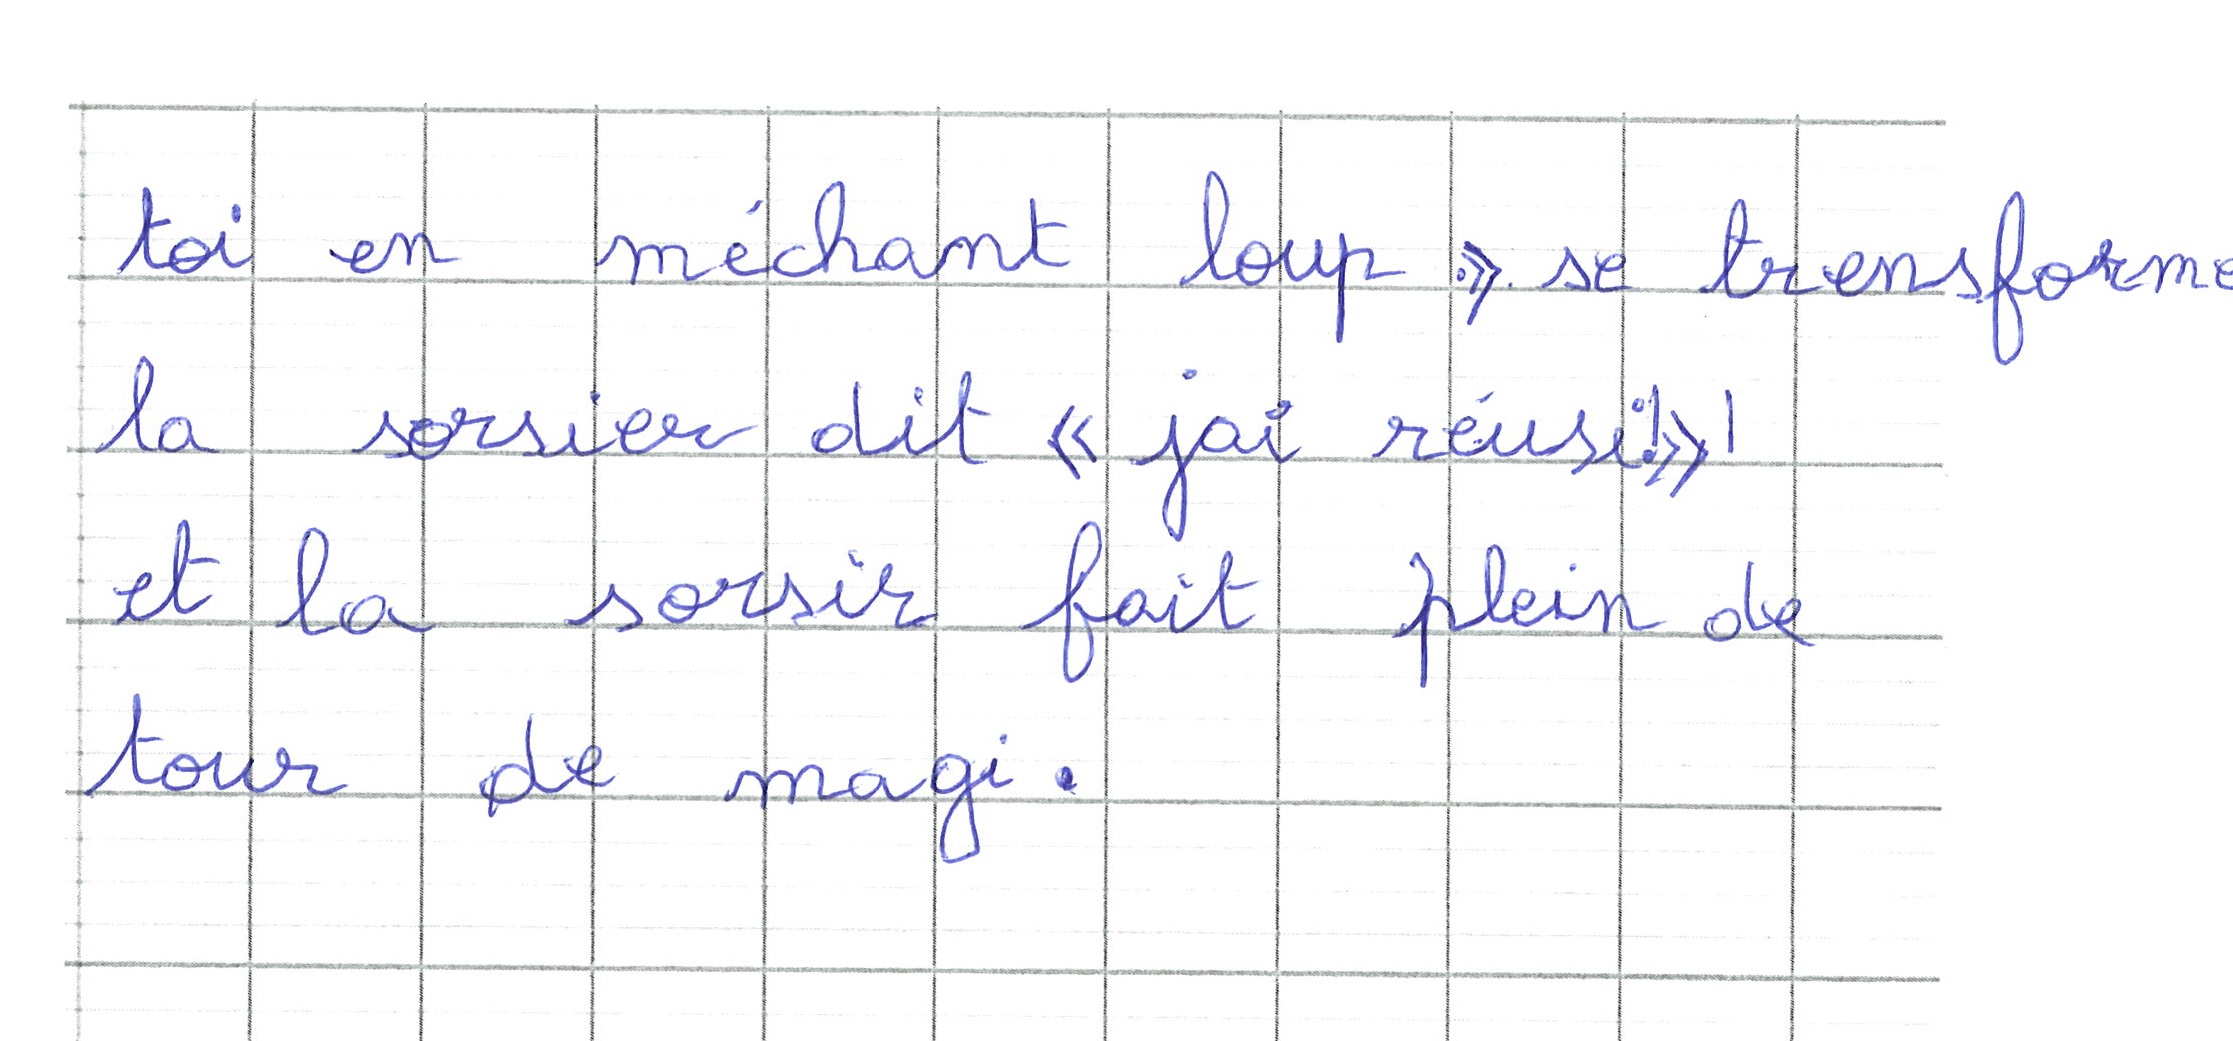 toi en méchant loup ». se trensforme
la sorsier dit « jai réusi! »!
et la sorsir fait plein de
tour de magi.